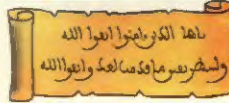 ياهااالذين امنوا اتقوا الله
ولتنظر نفس ما قدمت لغد واتقوا الله